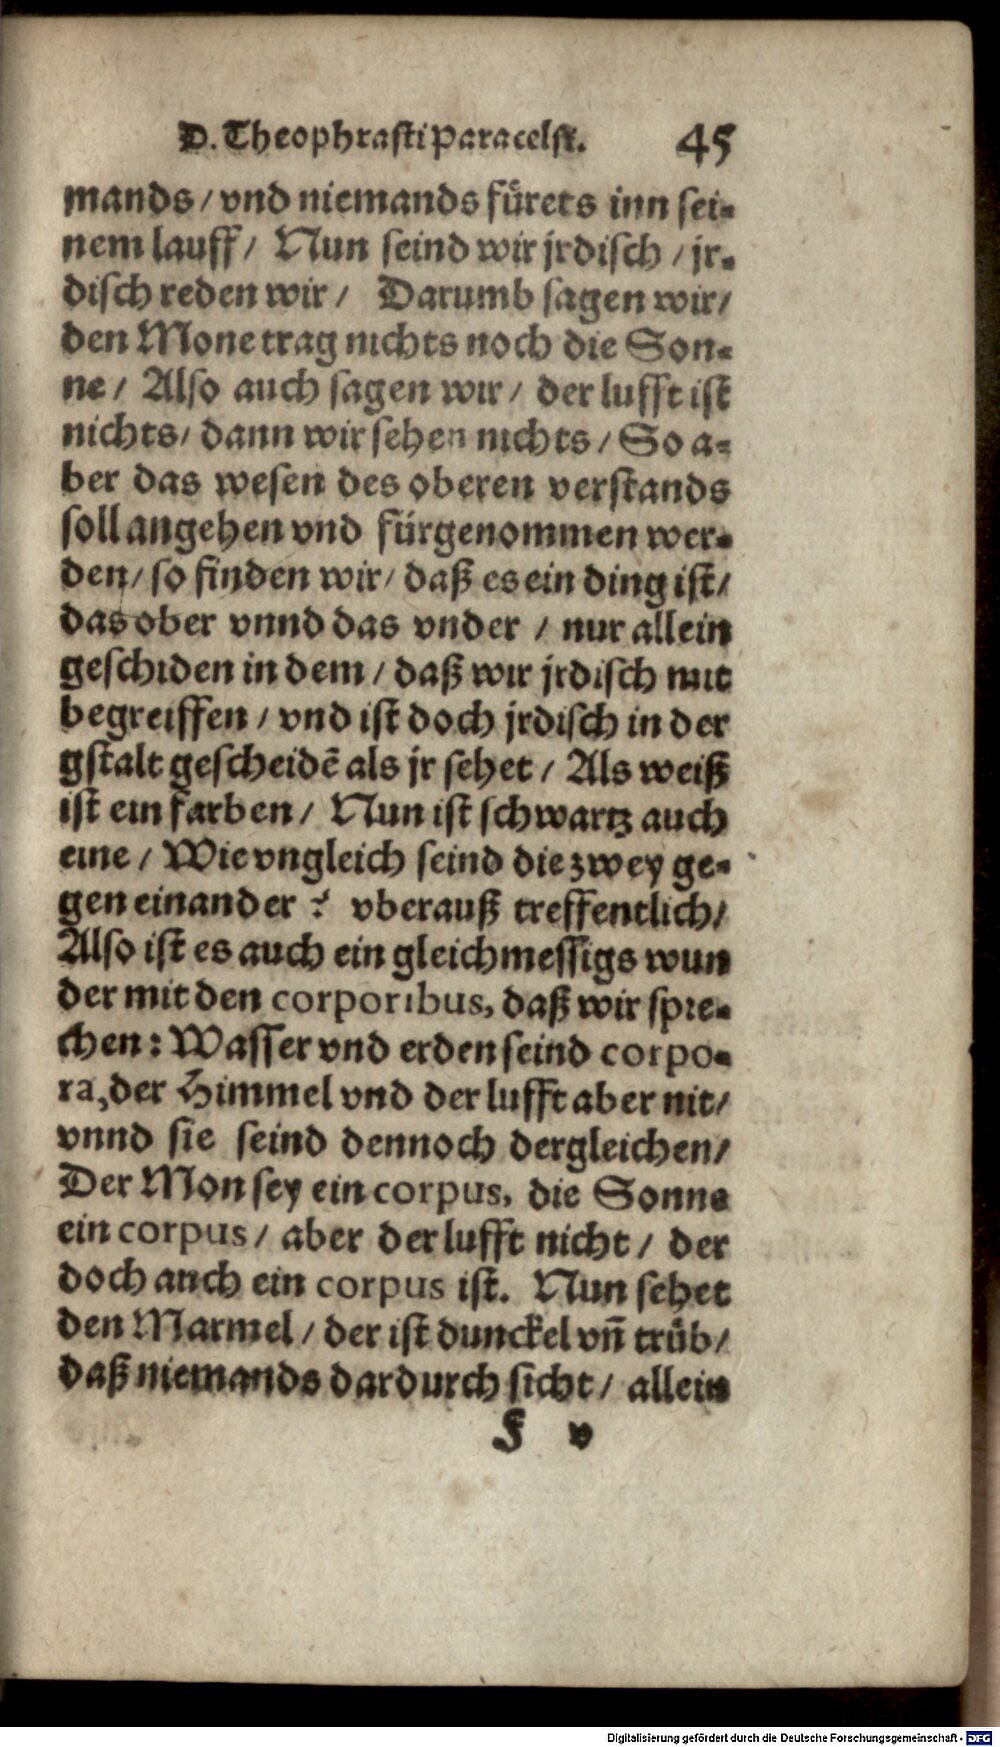 D. Theophrasti Paracelsi. 45
mands / vnd niemands fürets inn sei-
nem lauff / Nun seind wir jrdisch / jr-
disch reden wir / Darumb sagen wir /
den Mone trag nichts noch die Son-
ne / Also auch sagen wir / der lufft ist
nichts / dann wir sehen nichts / So a-
ber das wesen des oberen verstands
soll angehen vnd fürgenommen wer-
den / so finden wir / daß es ein ding ist /
das ober vnnd das vnder / nur allein
geschiden in dem / daß wir jrdisch nut
begreiffen / vnd ist doch jrdisch in der
gstalt gescheidẽ als jr sehet / Als weiß
ist ein farben / Nun ist schwartz auch
eine / Wie vngleich seind die zwey ge-
gen einander ? vberauß treffentlich /
Also ist es auch ein gleichmessigs wun
der mit den corporibus, daß wir spre-
chen: Wasser vnd erden seind corpo-
ra, der Himmel vnd der lufft aber nit /
vnnd sie seind dennoch dergleichen /
Der Mon sey ein corpus, die Sonne
ein corpus / aber der lufft nicht / der
doch auch ein corpus ist. Nun sehet
den Marmel / der ist dunckel vñ trüb /
daß niemands dardurch sicht / allein
F v
Digitalisierung gefördert durch die Deutsche Forschungsgemeinschaft - DFG